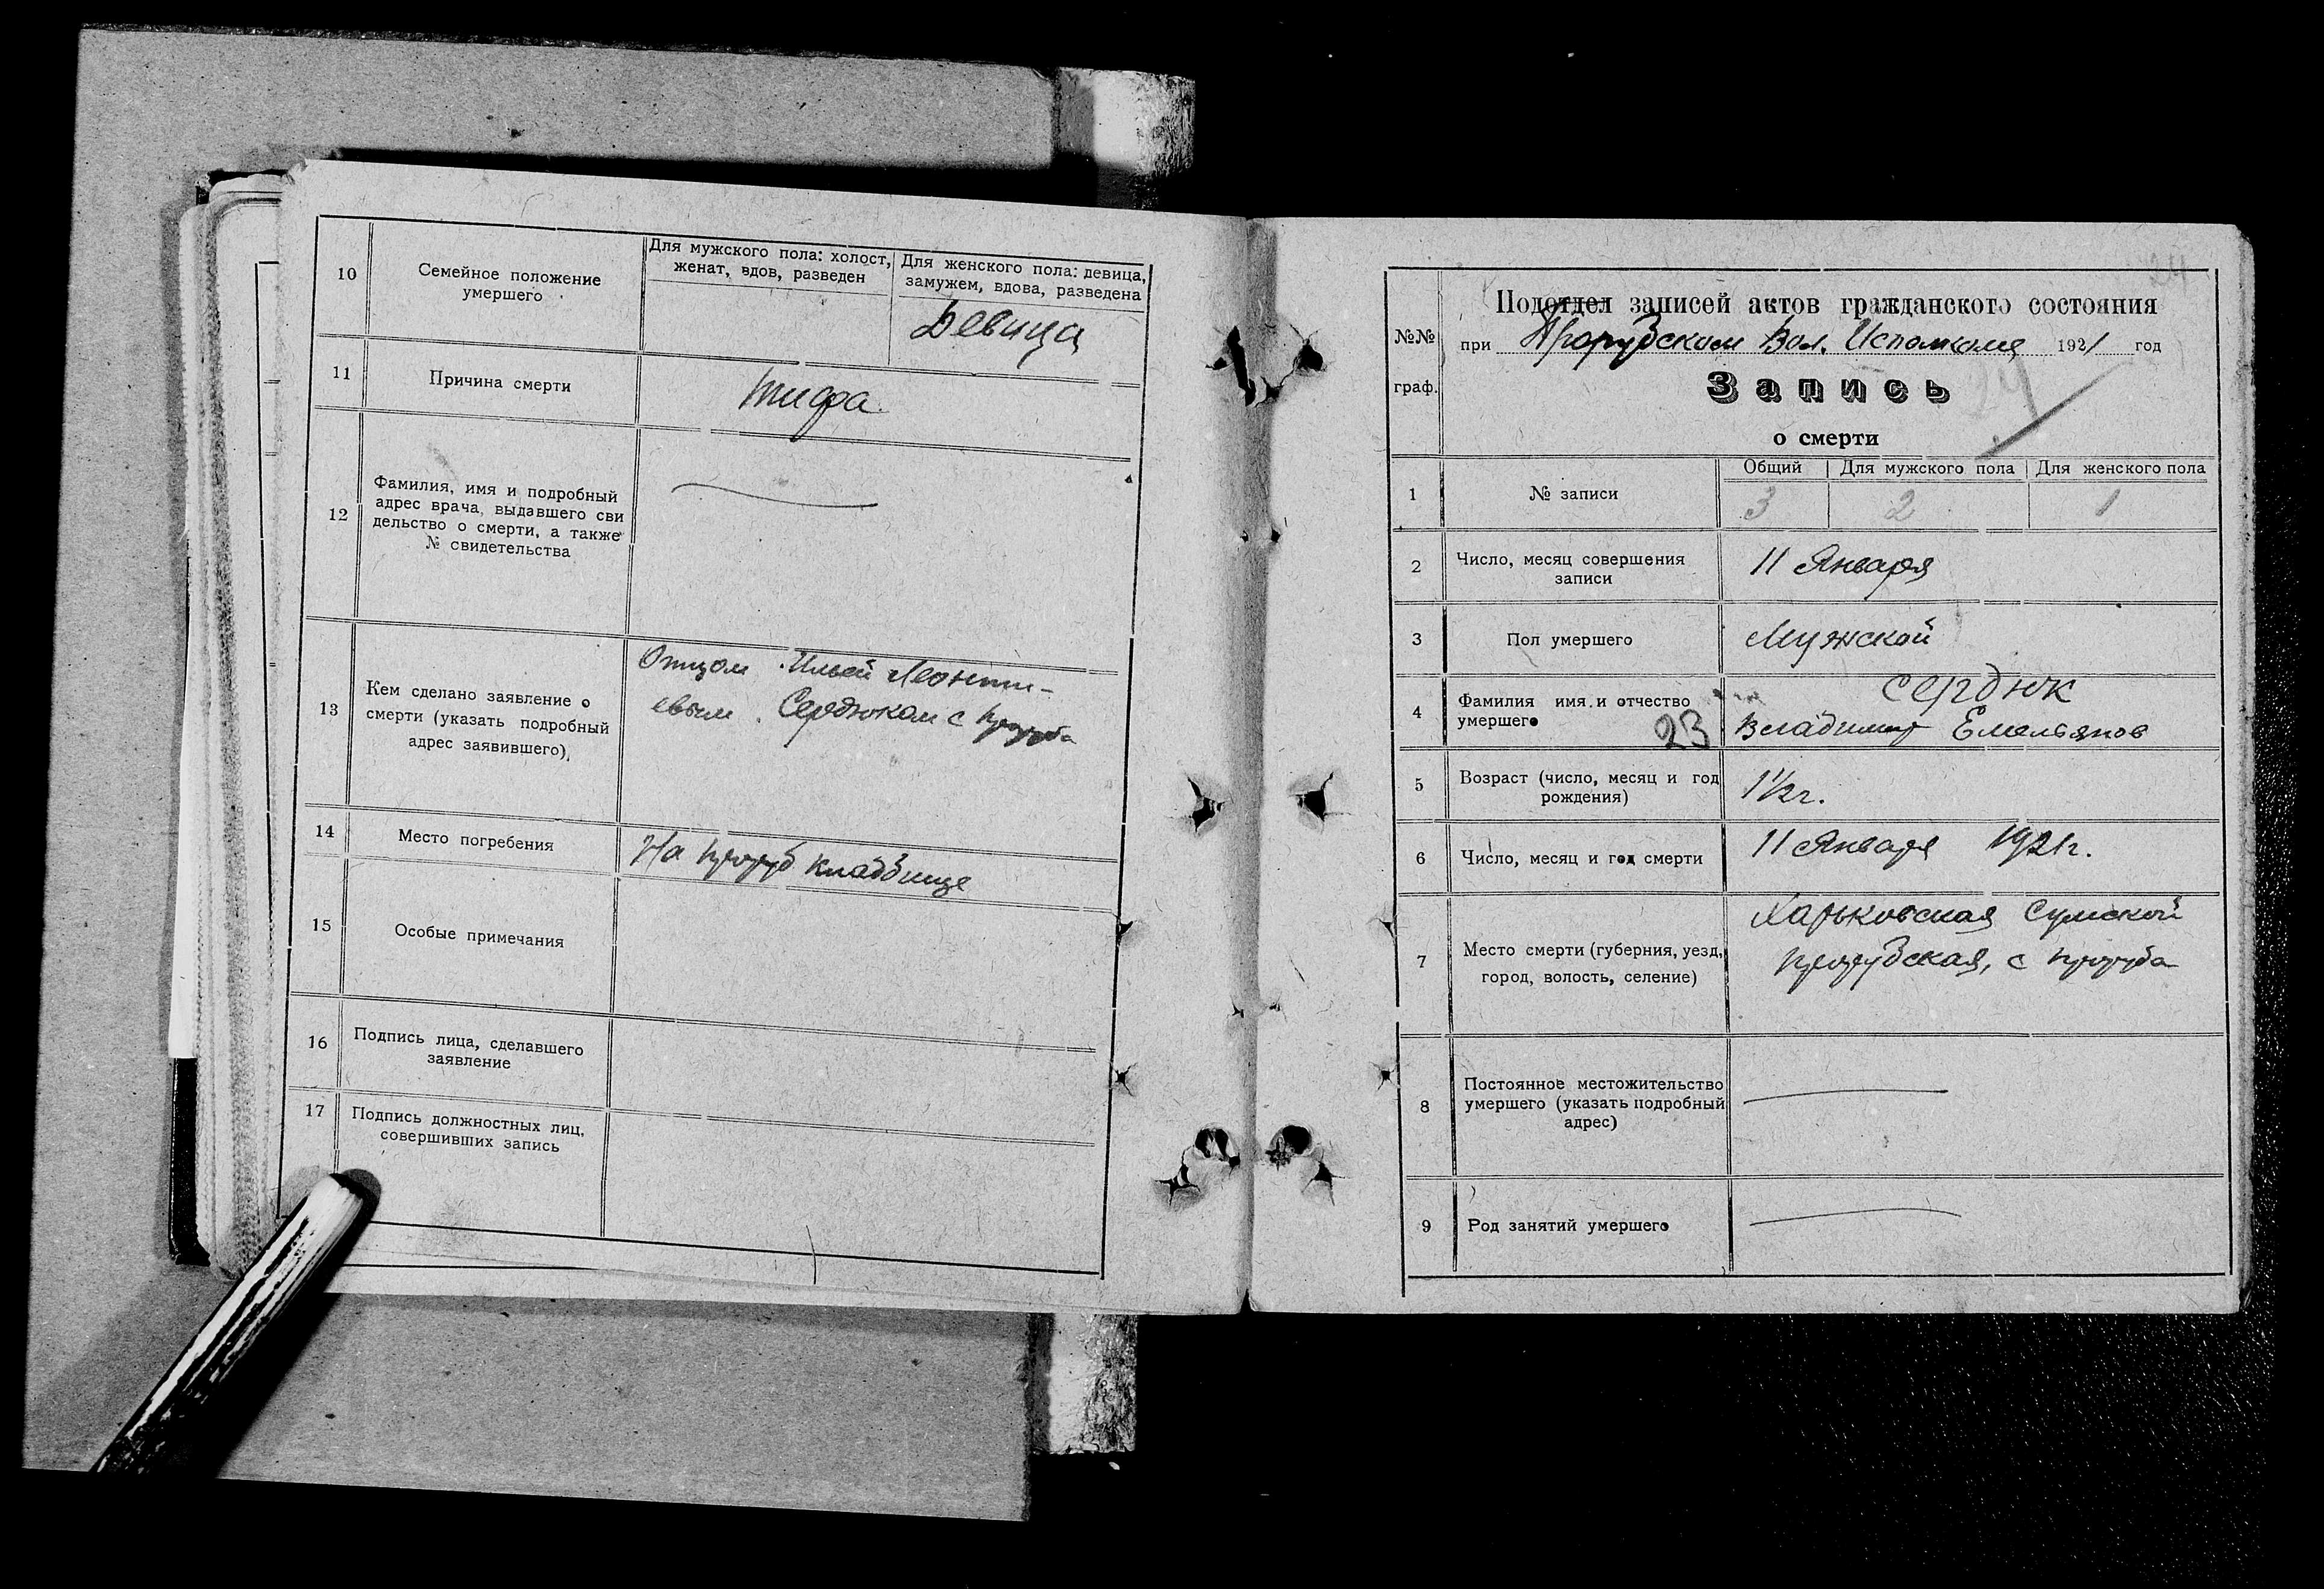 10
Семейное положение
умершего
Для мужского пола: холост,
женат, вдов, разведен
Для женского пола: девица,
замужем, вдова, разведена
Девица
11
Причина смерти
тифа.
12
Фамилия, имя и подробный
адрес врача, выдавшего сви
дельство о смерти, а также
№ свидетельства
13
Кем сделано заявление о
смерти (указать подробный
адрес заявившего),
Отцом Ильей Леонти-
евым Сердюком с Проруба
14
Место погребения
На Проруб кладбище
15
Особые примечания
16
Подпись лица, сделавшего
заявление
17
Подпись должностных лиц,
совершивших запись
24
№№
граф.
Подотдел записей актов гражданского состояния
при Прорубском Вол. Исполкоме 1921 год
Запись
24
о смерти
1
№ записи
Общий
Для мужского пола
Для женского пола
3
2
1
2
Число, месяц совершения
записи
11 Января
3
Пол умершего
Мужской
4
Фамилия имя и отчество
умершего
23
Сердюк
Владимир Емельянов
5
Возраст (число, месяц и год
рождения)
1½г.
6
Число, месяц и год смерти
11 Января 1921г.
7
Место смерти (губерния, уезд,
город, волость, селение)
Харьковская Сумской
Прорубская, с Проруба
8
Постоянное местожительство
умершего (указать подробный
адрес)
9
Род занятий умершего